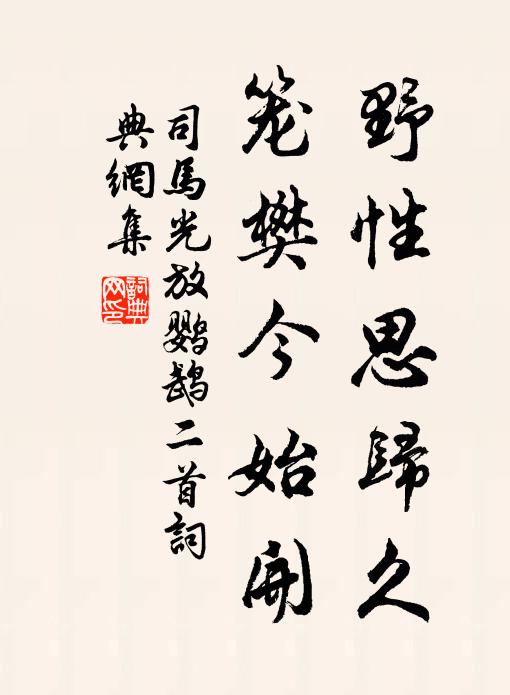 野性思歸久
笼樊今始開
司馬光放鹦鵡二首詞
典網集
詞典
网印